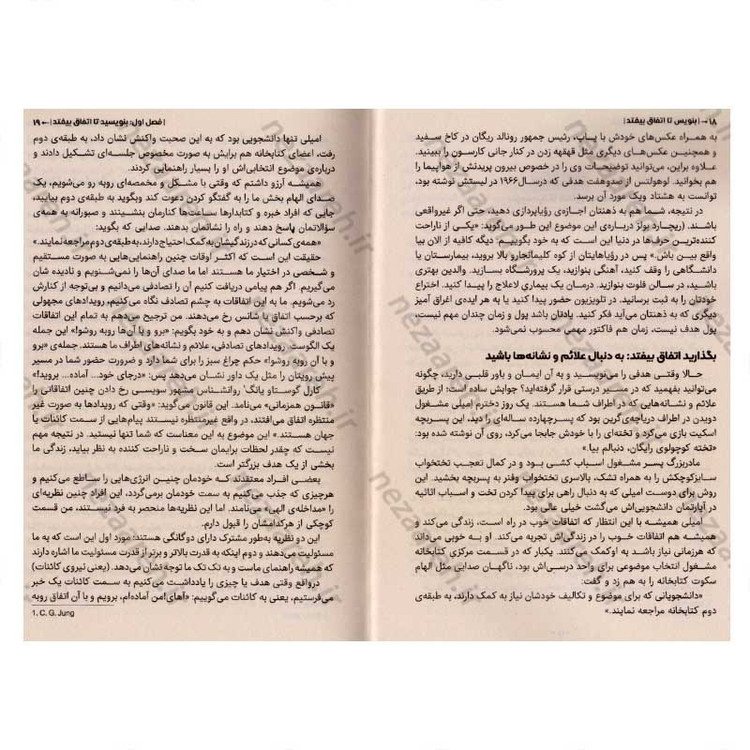 ۱۸ → | بنویس تا اتفاق بیفتد |
به همراه عکس‌های خودش با پاپ، رئیس جمهور رونالد ریگان در کاخ سفید
و همچنین عکس‌های دیگری مثل قهقهه زدن در کنار جانی کارسون را ببینید.
علاوه براین، می‌توانید توضیحات وی را در خصوص بیرون پریدنش از هواپیما را
هم بخوانید. لوهولتس از صدوهفت هدفی که درسال ۱۹۶۶ در لیستش نوشته بود،
توانست به هشتاد ویک مورد آن برسد.
در نتیجه، شما هم به ذهنتان اجازه‌ی رؤیاپردازی دهید، حتی اگر غیرواقعی
باشند. (ریچارد بولز درباره‌ی این موضوع این طور می‌گوید: «یکی از ناراحت
کننده‌ترین حرف‌ها در دنیا این است که به خود بگوییم: دیگه کافیه از الان بیا
واقع بین باش.» پس در رؤیاهایتان از کوه کلیمانجارو بالا بروید، بیمارستان یا
دانشگاهی را وقف کنید، آهنگی بنوازید، یک پرورشگاه بسازید. والدین بهتری
باشید، در سالن فلوت بنوازید. درمان یک بیماری لاعلاج را پیدا کنید. اختراع
خودتان را به ثبت برسانید. در تلویزیون حضور پیدا کنید یا به هر ایده‌ی اغراق آمیز
دیگری که به ذهنتان می‌آید فکر کنید. یادتان باشد پول و زمان چندان مهم نیست،
پول هدف نیست، زمان هم فاکتور مهمی محسوب نمی‌شود.
بگذارید اتفاق بیفتد: به دنبال علائم و نشانه‌ها باشید
حالا وقتی هدفی را می‌نویسید و به آن ایمان و باور قلبی دارید، چگونه
می‌توانید بفهمید که در مسیر درستی قرار گرفته‌اید؟ جوابش ساده است؛ از طریق
علائم و نشانه‌هایی که در اطراف شما هستند. یک روز دخترم امیلی مشغول
دویدن در اطراف دریاچه‌ی گرین بود که پسرچهارده ساله‌ای را دید، این پسربچه
اسکیت بازی می‌کرد و تخته‌ای را با خودش جابجا می‌کرد، روی آن نوشته شده بود:
«تخته کوچولوی رایگان، دنبالم بیا.»
مادربزرگ پسر مشغول اسباب کشی بود و در کمال تعجب تختخواب
سایزکوچکش را به همراه تشک، بالاسری تختخواب وفنر به پسربچه بخشید. این
روش برای دوست امیلی که به دنبال راهی برای پیدا کردن تخت و اسباب اثاثیه
در آپارتمان دانشجویی‌اش می‌گشت خیلی عالی بود.
امیلی همیشه با این انتظار که اتفاقات خوب در راه است، زندگی می‌کند و
همیشه هم اتفاقات خوب را در زندگی‌اش تجربه می‌کند. او به خوبی می‌داند
که هرزمانی نیاز باشد به اوکمک می‌کنند. یکبار که در قسمت مرکزی کتابخانه
مشغول انتخاب موضوعی برای واحد درسی‌اش بود، ناگهان صدایی مثل الهام
سکوت کتابخانه را به هم زد و گفت:
«دانشجویانی که برای موضوع و تکالیف خودشان نیاز به کمک دارند، به طبقه‌ی
دوم کتابخانه مراجعه نمایند.»
| فصل اول: بنویسید تا اتفاق بیفتد | ← ۱۹
امیلی تنها دانشجویی بود که به این صحبت واکنش نشان داد، به طبقه‌ی دوم
رفت، اعضای کتابخانه هم برایش به صورت مخصوص جلسه‌ای تشکیل دادند و
درباره‌ی موضوع انتخابی‌اش او را بسیار راهنمایی کردند.
همیشه آرزو داشتم که وقتی با مشکل و مخمصه‌ای روبه رو می‌شویم، یک
صدای الهام بخش ما را به گفتگو کردن دعوت کند وبگوید به طبقه‌ی دوم بیایید،
جایی که افراد خبره و کتابدارها ساعت‌ها کنارمان بنشینند و صبورانه به همه‌ی
سؤالاتمان پاسخ دهند و راه را نشانمان بدهند. صدایی که بگوید:
«همه‌ی کسانی که در زندگیشان به کمک احتیاج دارند، به طبقه‌ی دوم مراجعه نمایند.»
حقیقت این است که اکثر اوقات چنین راهنمایی‌هایی به صورت مستقیم
و شخصی در اختیار ما هستند اما ما صدای آن‌ها را نمی‌شنویم و نادیده شان
می‌گیریم. اگر هم پیامی دریافت کنیم آن را تصادفی می‌دانیم و بی‌توجه از کنارش
رد می‌شویم. ما به این اتفاقات به چشم تصادف نگاه می‌کنیم، رویدادهای مجهولی
که برحسب اتفاق یا شانس رخ می‌دهند. من ترجیح می‌دهم به تمام این اتفاقات
تصادفی واکنش نشان دهم و به خود بگویم: «برو و با آن‌ها روبه روشو!» این جمله
یک الگوست. رویدادهای تصادفی، علائم و نشانه‌های اطراف ما هستند. جمله‌ی «برو
و با آن روبه روشو!» حکم چراغ سبز را برای شما دارد و ضرورت حضور شما در مسیر
پیش رویتان را مثل یک داور نشان می‌دهد پس: «درجای خود... آماده... بروید!»
کارل گوستاو یانگ¹ روانشناس مشهور سویسی رخ دادن چنین اتفاقاتی را
«قانون همزمانی» می‌نامد. این قانون می‌گوید: «وقتی که رویدادها به صورت غیر
منتظره اتفاق می‌افتند، در واقع غیرمنتظره نیستند پیام‌هایی از سمت کائنات یا
جهان هستند.» این موضوع به این معناست که شما تنها نیستید. در نتیجه مهم
نیست که چقدر لحظات برایمان سخت و ناراحت کننده به نظر بیاید، زندگی ما
بخشی از یک هدف بزرگتر است.
بعضی افراد معتقدند که خودمان چنین انرژی‌هایی را ساطع می‌کنیم و
هرچیزی که جذب می‌کنیم به سمت خودمان برمی‌گردد، این افراد چنین نظریه‌ای
را «مداخله‌ی الهی» می‌نامند. اما این نظریه‌ها منحصر به فرد نیستند، من قسمت
کوچکی از هرکدامشان را قبول دارم.
این دو نظریه به‌طور مشترک دارای دوگانگی هستند: مورد اول این است که به ما
مسئولیت می‌دهند و دوم اینکه به قدرت بالاتر و برتر از قدرت مسئولیت ما اشاره دارند
که همیشه راهنمای ماست و به تک تک ما توجه نشان می‌دهد. (یعنی نیروی کائنات)
درواقع وقتی هدف یا چیزی را یادداشت می‌کنیم به سمت کائنات یک خبر
می‌فرستیم، یعنی به کائنات می‌گوییم: «آهای! من آماده‌ام، برویم و با آن اتفاق روبه
1. C. G. Jung
nezaamah.ir